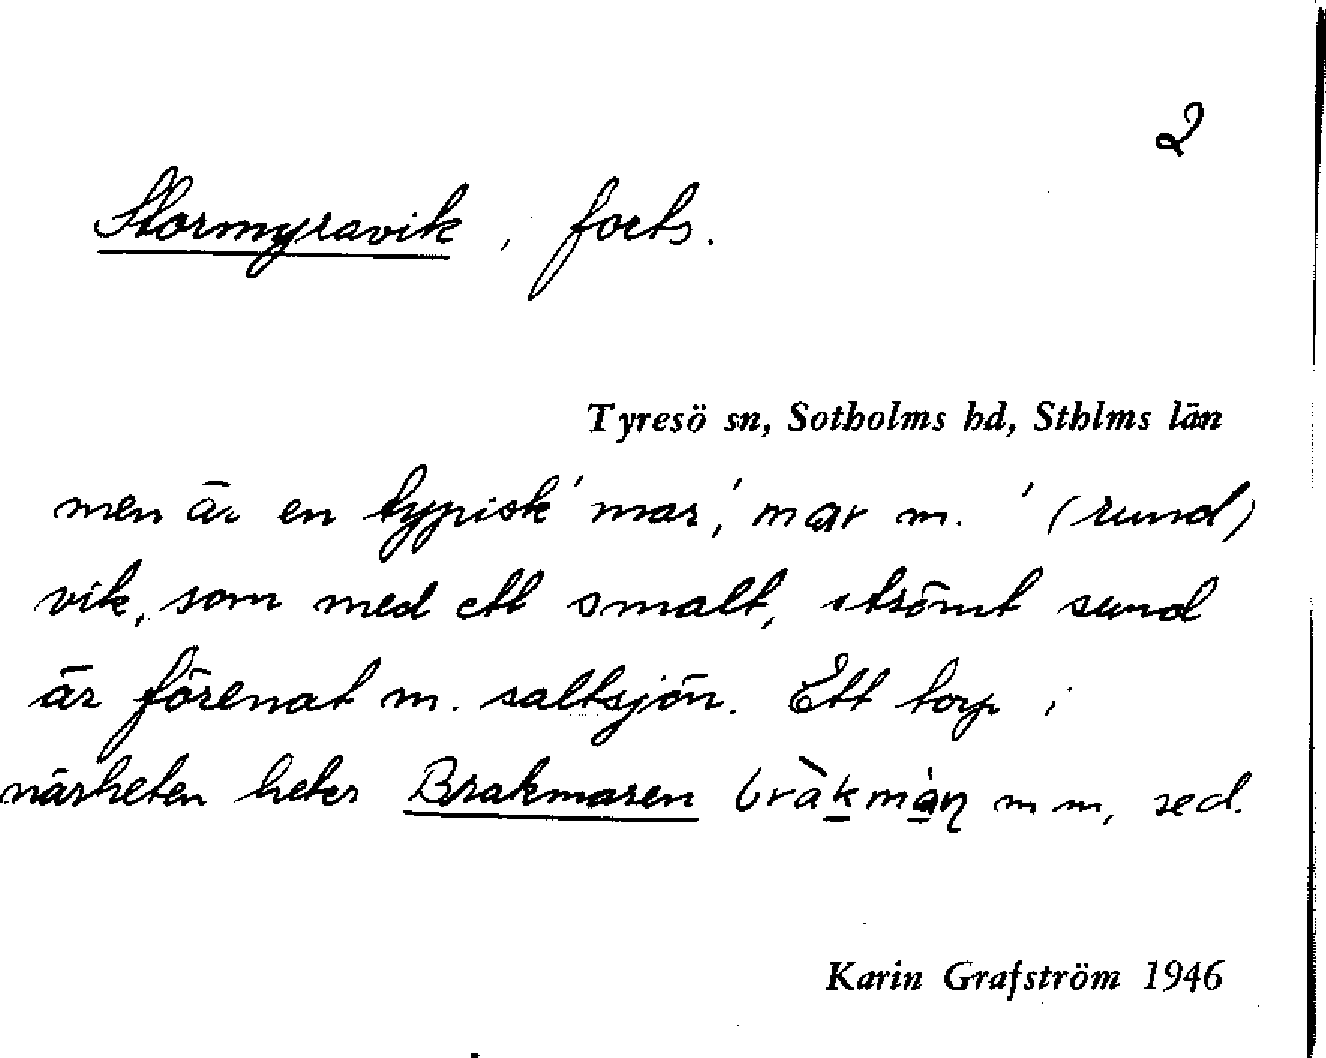 2
Stormyravik, forts.
Tyresö sn, Sotholms hd, Sthlms län
men är en typisk 'mar', mar m. '(rund)
vik, som med ett smalt, strömt sund
är förenat m. saltsjön. Ett torp i
närheten heter Brakmaren m m, sed.
Karin Grafström 1946